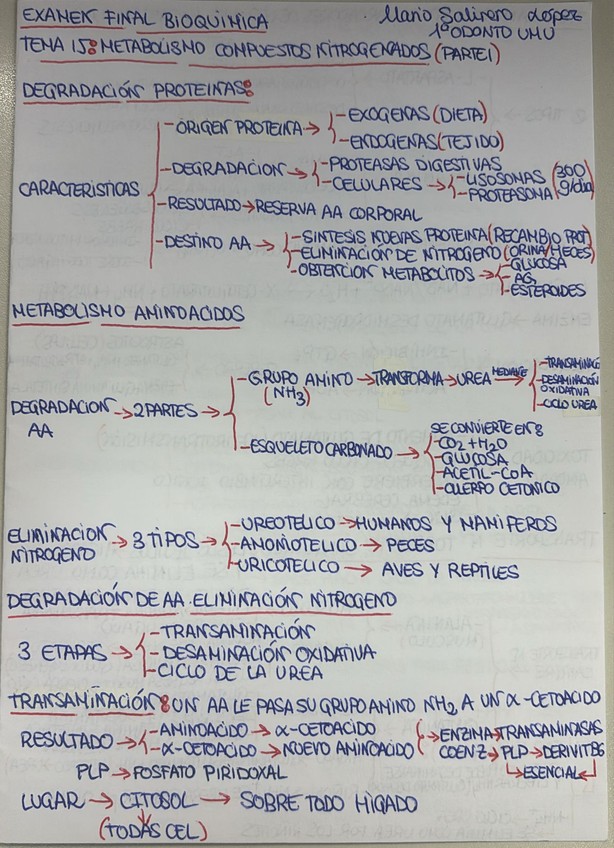 EXAMEN FINAL BIOQUIMICA
Mario Salinero López
1º ODONTO UMU
TEMA 15: METABOLISMO COMPUESTOS NITROGENADOS (PARTE 1)
DEGRADACIÓN PROTEINAS:
CARACTERÍSTICAS
-ORIGEN PROTEINA →
-EXOGENAS (DIETA)
-ENDOGENAS (TEJIDO)
-DEGRADACION →
-PROTEASAS DIGESTIVAS
-CELULARES → -LISOSOMAS (300
-PROTEASOMA g/dia)
-RESULTADO → RESERVA AA CORPORAL
-DESTINO AA →
-SINTESIS NUEVAS PROTEINA (RECAMBIO PROT)
-ELIMINACIÓN DE NITROGENO (ORINA/HECES)
-OBTENCION METABOLITOS → -GLUCOSA
-AG
-ESTEROIDES
METABOLISMO AMINOACIDOS
DEGRADACION → 2 PARTES →
AA
-GRUPO AMINO → TRANSFORMA → UREA MEDIANTE →
(NH3)
-TRANSAMINACI
-DESAMINACIÓN
OXIDATIVA
-CICLO UREA
-ESQUELETO CARBONADO →
SE CONVIERTE EN:
-CO2 + H2O
-GLUCOSA
-ACETIL-CoA
-CUERPO CETONICO
ELIMINACION → 3 TIPOS →
NITROGENO
-UREOTELICO → HUMANOS Y MAMIFEROS
-AMONIOTELICO → PECES
-URICOTELICO → AVES Y REPTILES
DEGRADACIÓN DE AA. ELIMINACIÓN NITROGENO
3 ETAPAS →
-TRANSAMINACIÓN
-DESAMINACIÓN OXIDATIVA
-CICLO DE LA UREA
TRANSAMINACIÓN: UN AA LE PASA SU GRUPO AMINO NH2 A UN α-CETOACIDO
RESULTADO →
-AMINOACIDO → α-CETOACIDO
-α-CETOACIDO → NUEVO AMINOACIDO
→ ENZIMA → TRANSAMINASAS
COENZ → PLP → DERIVIT B6
ESENCIAL
PLP → FOSFATO PIRIDOXAL
LUGAR → CITOSOL → SOBRE TODO HIGADO
(TODAS CEL)